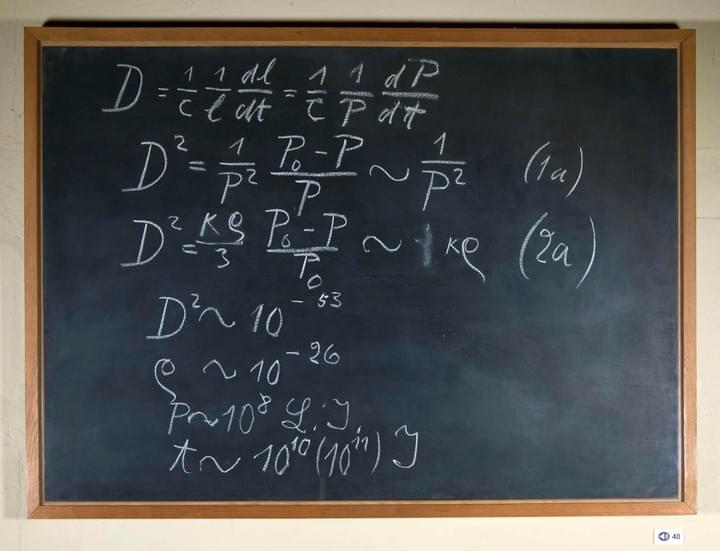 D = 1/c 1/l dl/dt = 1/c 1/P dP/dt
D² = 1/P² P₀-P/P ~ 1/P² (1a)
D² = κρ/3 P₀-P/P₀ ~ κρ (2a)
D² ~ 10⁻⁵³
ρ ~ 10⁻²⁶
P ~ 10⁸ L.J.
t ~ 10¹⁰(10¹¹) J
40